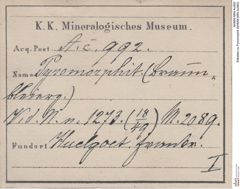 K. K. Mineralogisches Museum.
Acq. Post A. c. 992.
Name Pyromorphit (Braun-
bleierz.)
Wid. N. n. 1273. (18/49) M. 2089.
Fundort Huelgoet, Frankr.
I